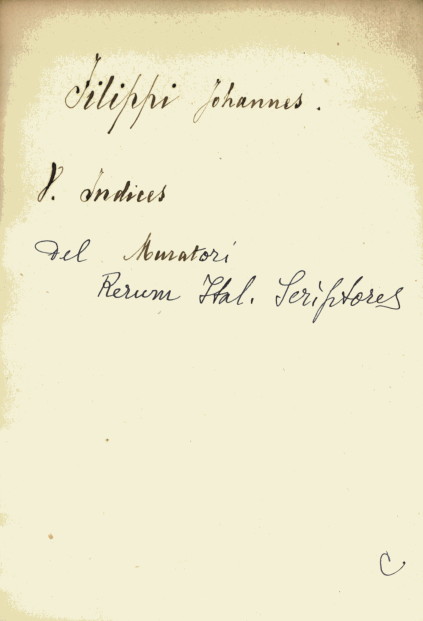 Filippi Johannes.
V. Indices
Del Muratori
Rerum Ital. Scriptores
C